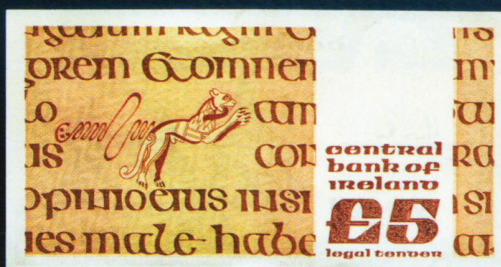 orem &omnem
o am
is con
opinioeius insi si
ies male habe
central
bank of
ireland
£5
legal tender